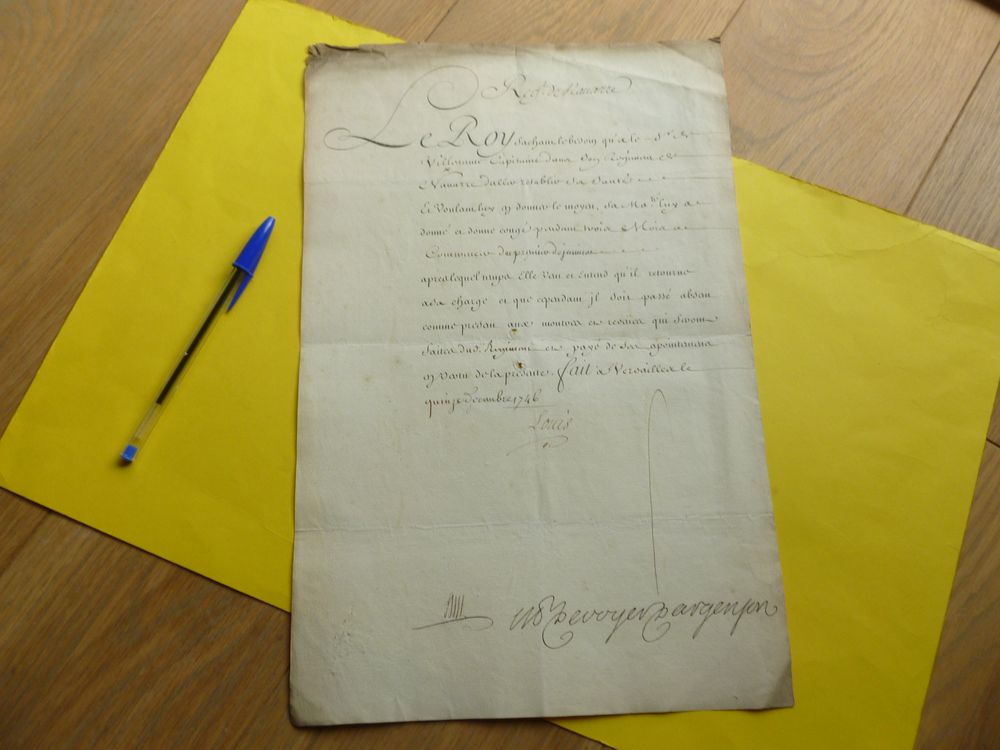 Regt. de Navarre
Le Roy Sachant le besoin qu'a le Sr. de
Capitaine dans Son Regiment de
Navarre d'aller retablir Sa Santé
Et Voulant luy en donner le moyen, Sa Maté. luy a
donné et donne congé pendant trois Mois a
Commencer du premier de janvier
apres lequel temps Elle Veut et Entend qu'il retourne
a sa charge et que cependant jl Soit passé absent
comme present aux montres et reveües qui Seront
faites dud. Regiment et payé de Ses apointemens
en Vertu de la presente. fait a Versailles le
quinze Decembre 1746
Louis
M P De voyer D'argenson